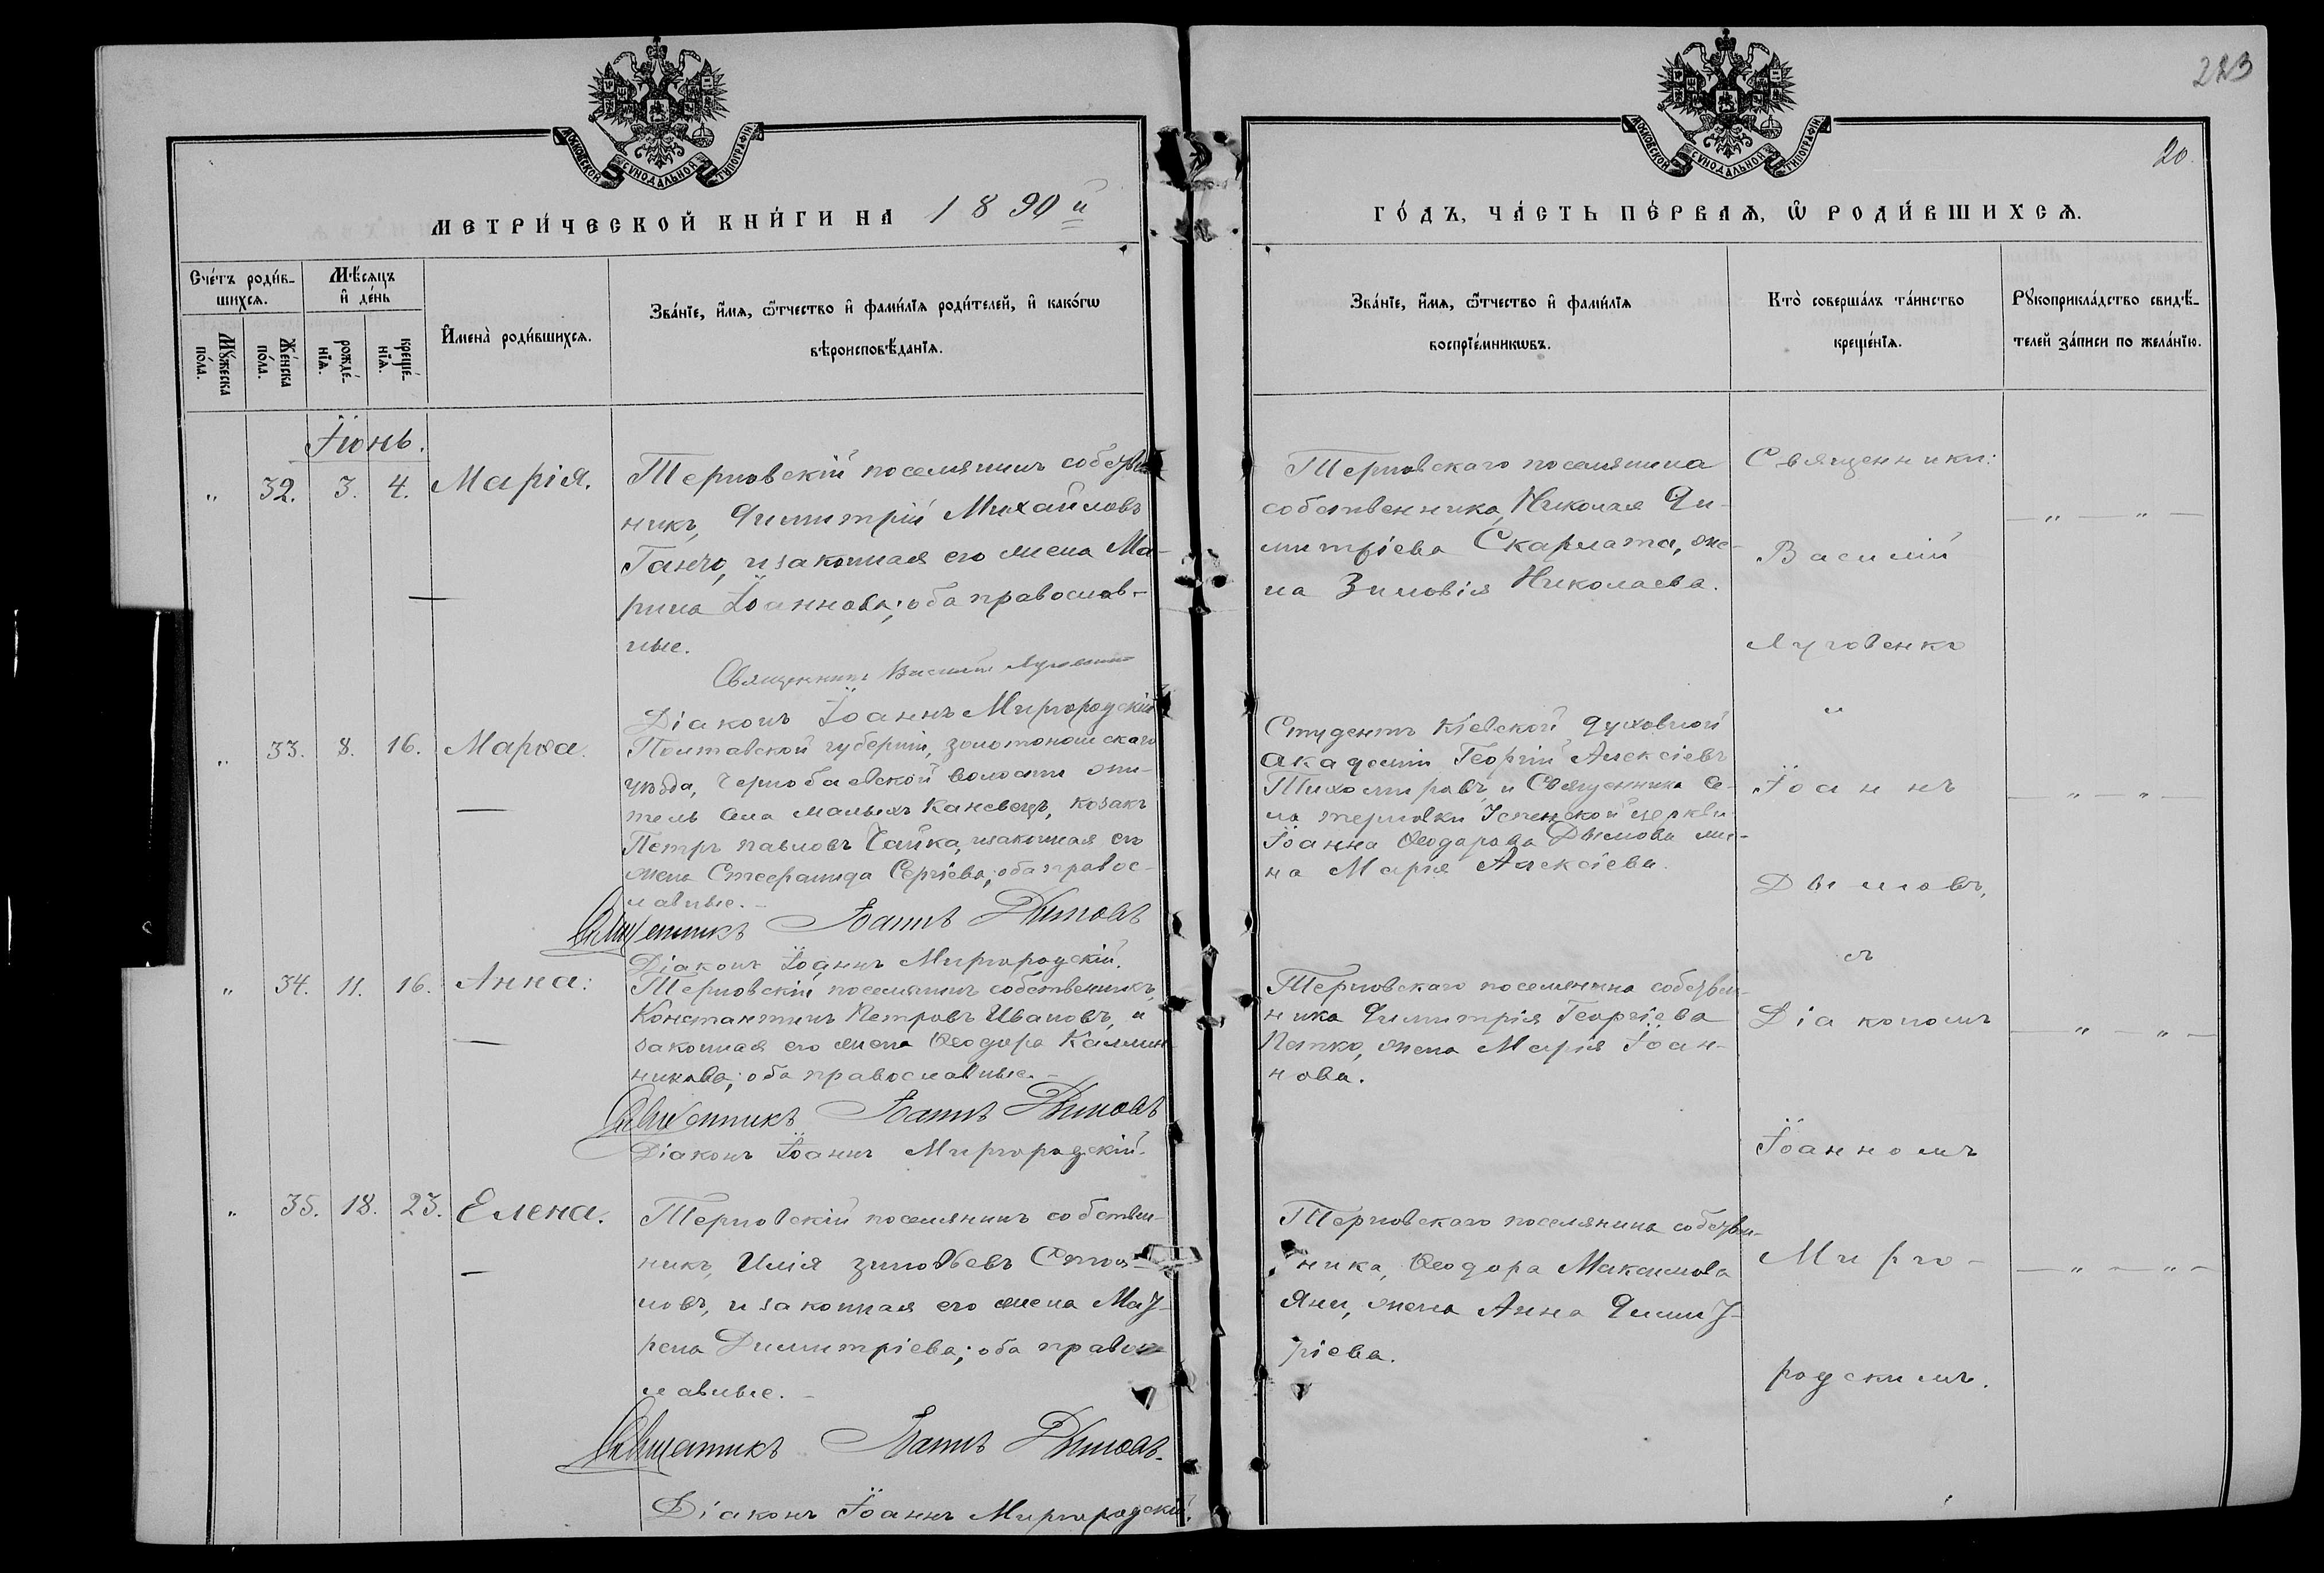 223
20.
МОСКОВСКОЙ СѴНОДАЛЬНОЙ ТѴПОГРАФІИ
МОСКОВСКОЙ СѴНОДАЛЬНОЙ ТѴПОГРАФІИ
МЕТРИ́ЧЕСКОЙ КНИ́ГИ НА 1890й
ГО́ДЪ, ЧА́СТЬ ПЕ́РВАѦ, Ѽ РОДИ́ВШИХСѦ.
Сче́тъ роди́в-
шихсѧ.
Мꙋ́жеска по́ла.
Же́нска по́ла.
Мѣ́сѧцъ
и҆ де́нь
рожде́-нїѧ.
креще́-нїѧ.
И҆мена̀ роди́вшихсѧ.
Зва́нїе, и҆́мѧ, ѻ҆́тчество и҆ фами́лїѧ роди́телей, и҆ како́гѡ
вѣроисповѣ́данїѧ.
Зва́нїе, и҆́мѧ, ѻ҆́тчество и҆ фами́лїѧ
воспрїе́мникѡвъ.
Кто̀ соверша́лъ та́инство
креще́нїѧ.
Рꙋкоприкла́дство свидѣ́-
телей за́писи по жела́нїю.
Іюнь.
" 32. 3. 4. Марія.
Терновскій поселянинъ собствен
никъ, Димитрій Михайловъ
Ганчо, и законная его жена Ма-
рина Іоаннова; оба православ-
ные.
Священникъ Василій Луговенко
Діаконъ Іоаннъ Миргородскій
Терновскаго поселянина
собственника, Николая Ди-
митріева Скарлата, же-
на Зиновія Николаева.
Священники:
Василій
Луговенко
и
Іоаннъ
Дымовъ,
съ
Діакономъ
Іоанномъ
Мирго-
родскимъ.
— " — " —
" 33. 8. 16. Марѳа.
Полтавской губерніи, золотоношскаго
уѣзда, Чернобаевской волости жи-
тель села малыхъ Каневецъ, козакъ
Петръ павловъ Чайка, изаконная его
жена Стефанида Сергіева; оба правос-
лавные.-
Священникъ Іоаннъ Дымовъ
Діаконъ Іоаннъ Миргородскій.
Студентъ Кіевской духовной
академіи Георгій Алексіевъ
Тихомировъ и Священника се-
ла терновки Успенской церкви
Іоанна Ѳеодорова Дымова же-
на Марія Алексіева.
— " — " —
" 34. 11. 16. Анна:
Терновскій поселянинъ собственникъ,
Константинъ Петровъ Ивановъ, и
законная его жена Ѳеодора Калин
никова; оба православные.-
Священникъ Іоаннъ Дымовъ
Діаконъ Іоаннъ Миргородскій.
Терновскаго поселянина собствен-
ника Димитрія Георгіева
Петко, жена Марія Іоан-
нова.
— " — " —
" 35. 18. 23. Елена.
Терновскій поселянинъ собствен-
никъ, Илія зиновьевъ Стоя-
новъ, и законная его жена Мат-
рена Димитріева; оба правос
лавные.-
Священникъ Іоаннъ Дымовъ.
Діаконъ Іоаннъ Миргородскій.
Терновскаго поселянина собствен-
ника, Ѳеодора Максимова
Яни, жена Анна Димит-
ріева.
— " — " —